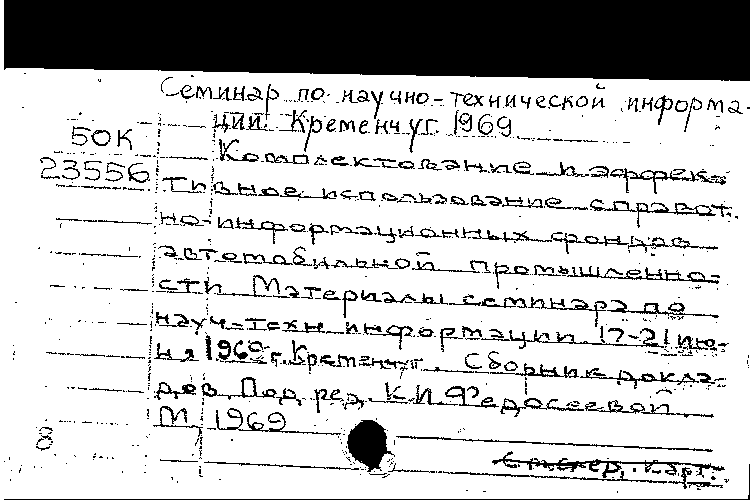 Семинар по научно-технической информа-
ции. Кременчуг. 1969
50К
23556
Комплектование и эффек-
тивное использование справоч.
но-информационных фондов
автомобильной промышленно-
сти. Материалы семинара по
науч-техн информации 17-21 ию-
ня 1969 г. Кременчуг. Сборник докла-
дов. Под ред. К.И.Федосеевой.
М. 1969
8
карт.